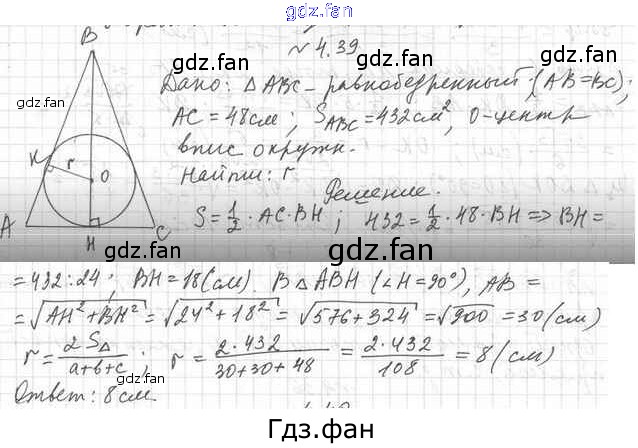 gdz.fan
B
№ 4.39.
gdz.fan
gdz.fan
Дано: △ABC – равнобедренный, (AB=BC);
gdz.fan
AC = 48см; S_ABC = 432см², O-центр
впис окружн.
Найти: r
Решение.
K r O
A H C
S = 1/2 · AC · BH; 432 = 1/2 · 48 · BH => BH =
gdz.fan
gdz.fan
= 432:24; BH = 18(см). В △ABH (∠H=90°), AB =
= √AH²+BH² = √24²+18² = √576+324 = √900 = 30(см)
r = 2S△/a+b+c; r = 2·432/30+30+48 = 2·432/108 = 8(см)
gdz.fan
gdz.fan
Ответ: 8см.
Гдз.фан